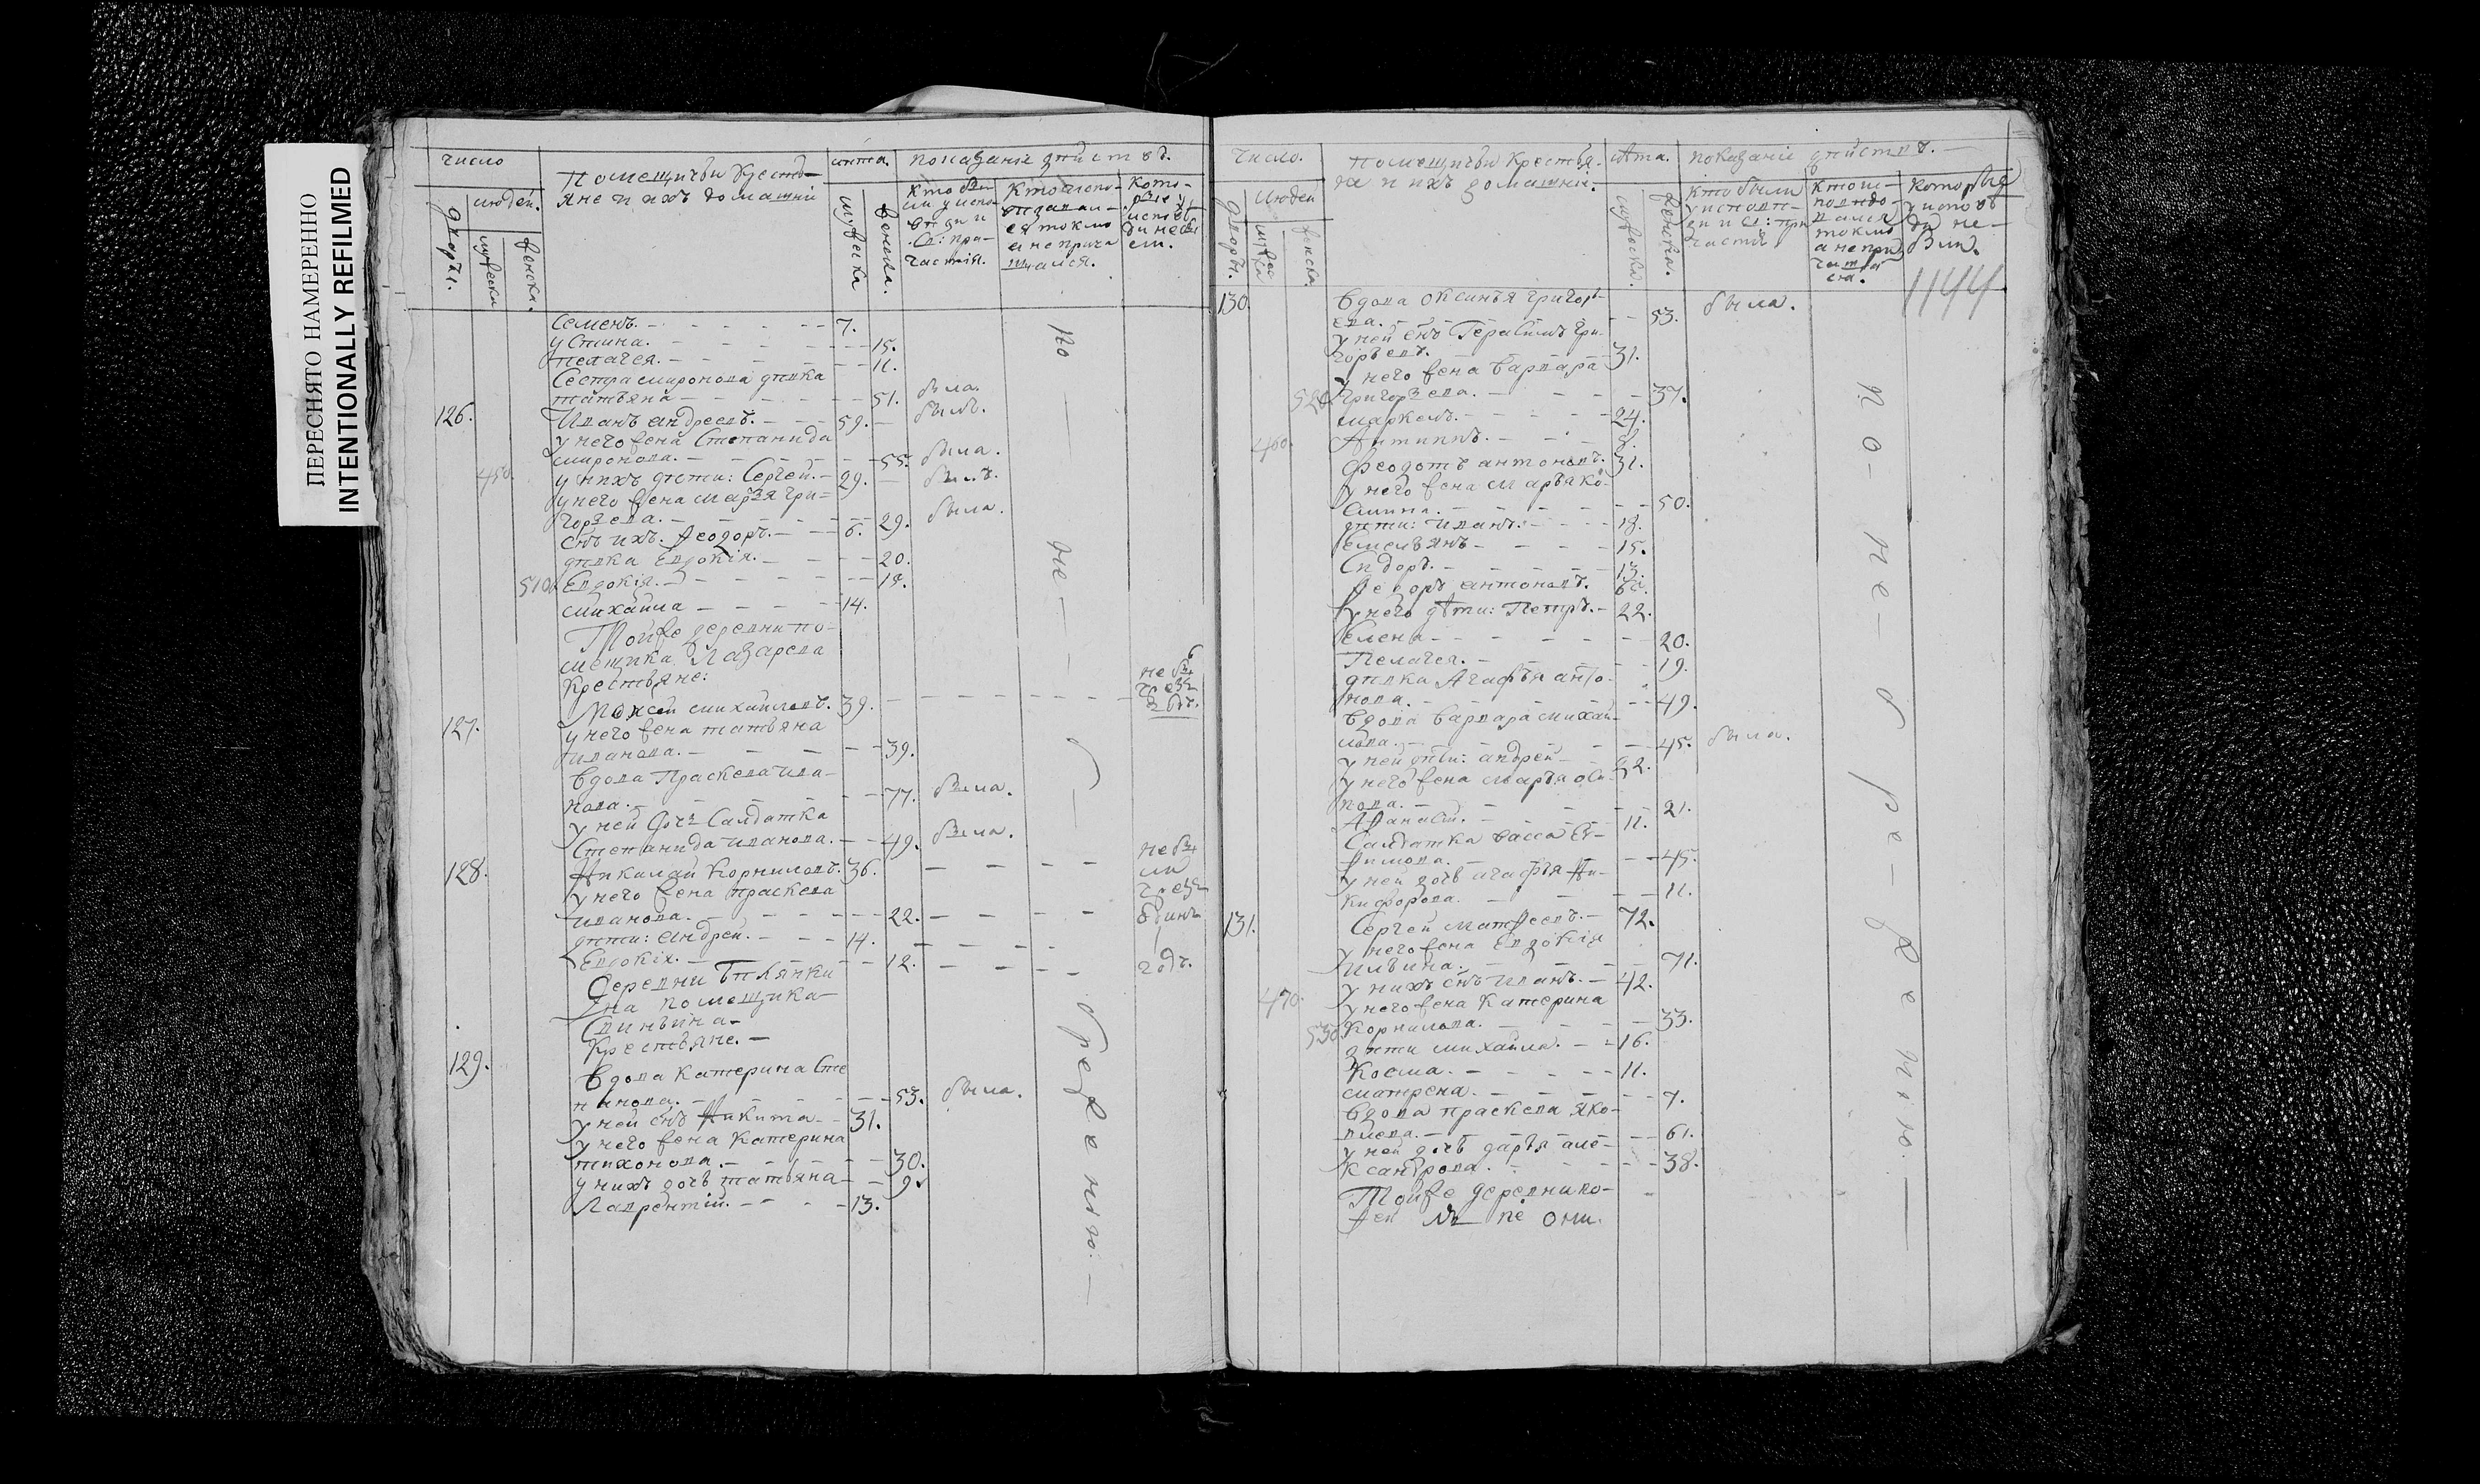 ПЕРЕСНЯТО НАМЕРЕННО
INTENTIONALLY REFILMED
число
Помещичьи Кресть-
яне и ихъ домашнiи
лѣта.
показанiе дѣйствъ.
людей.
дворы.
мужеска
женска.
мужеска
женска.
Кто бы-
ли у испо-
вѣди и
Св: при-
частiя.
Кто испо-
вѣдали-
ся токмо
а не прича
щался.
кото-
рые у
исповѣ
ди небы
ли.
Семенъ. - 7.
устина. - 15.
пелагея. - 11.
Сестра миронова дѣвка
татьяна - 51. была.
126. Иванъ андреевъ. - 59. былъ.
у него жена Степанида
миронова. - 55. была.
450. у нихъ дѣти: Сергей. - 29. былъ.
у него жена марья гри=
горьева. - 29. была.
снъ ихъ. Ѳеодоръ. - 6.
дѣвка Евдокiя. - 20.
510. Евдокiя. - 19.
михайла - 14.
Тойже деревни по-
мещика Лазарева
Крестьяне:
127. Моисей михайловъ. 39.
у него жена татьяна
иванова. - 39.
вдова Праскева ива-
нова. - 77. была.
у ней дочь Салдатка
Степанида иванова. - 49. была.
128. Николай Корниловъ. 36. небы
ли
у него жена праскева
иванова. - 22. - одинъ
дѣти: андрей. - 14.
Евдокiя. - 12. годъ.
Деревни
помещика
Свиньина-
Крестьяне. -
129. вдова Катерина Сте
панова. - 53. была.
у ней снъ Никита - 31.
у него жена Катерина
тихонова. - 30.
у нихъ дочь татьяна - 9
Лаврентiй. - 13.
по - не - б - реженiю. -
число.
помещичьи Крестья-
не и ихъ домашнiи.
лѣта.
показанiе дѣйствъ. -
людей
дворы.
женска.
мужеска.
женска.
кто были
у исповѣ-
ди и Св: при
частiя
кто ис-
повѣдо-
вался
токмо
а не при
чаща
ся.
которые
у исповѣ
ди не-
были.
1144
130. вдова оксинья григорь-
ева. - 53. была.
у ней снъ Герасимъ гри-
горьевъ. 31.
у него жена варвара
520 григорьева. - 37.
маркелъ. - 24.
460. Антипъ. - 8.
Ѳеодотъ антоновъ. 31.
у него жена марья ко-
смина. - 50.
дѣти: иванъ. - 18.
Емельянъ - 15.
Сидоръ. - 13.
Ѳедоръ антоновъ.
у него дѣти: Петръ. - 22.
Елена - 20.
Пелагея. - 19.
дѣвка Агафья анто-
нова. - 49.
вдова варвара михай-
лова. - 45. была.
у ней дѣти: андрей - 22.
у него жена марья оси-
пова. - 21.
Аѳанасiй. - 11.
Салдатка васса Ев-
ѳимова. - 45.
у ней дочь агафья Ни-
кифорова. - 11.
131. Сергей матѳеевъ. - 72.
у него жена Евдокiя
Ильина. - 71.
у нихъ снъ иванъ. - 42.
470. у него жена Катерина
530. Корнилова. - 33.
дѣти михайла. - 16.
Косма. - 11.
матрена. - 7.
вдова праскева яко-
влева. - 61.
у ней дочь дарья але-
ксандрова. - 38.
Тойже деревни по-
по-не-бре-же-нiю. -